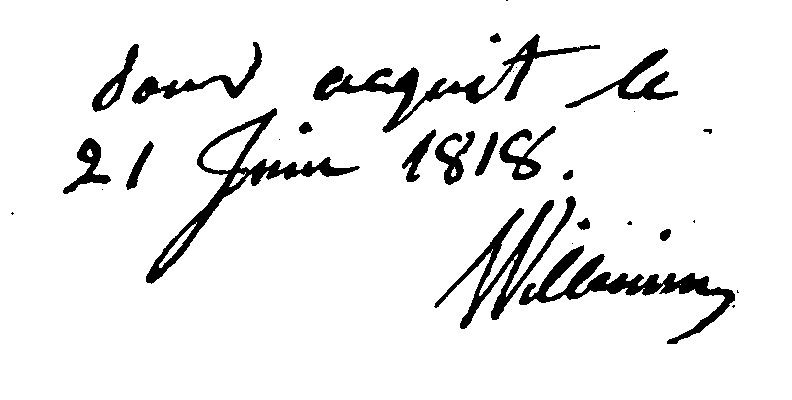 pour acquit le
21 Juin 1818.